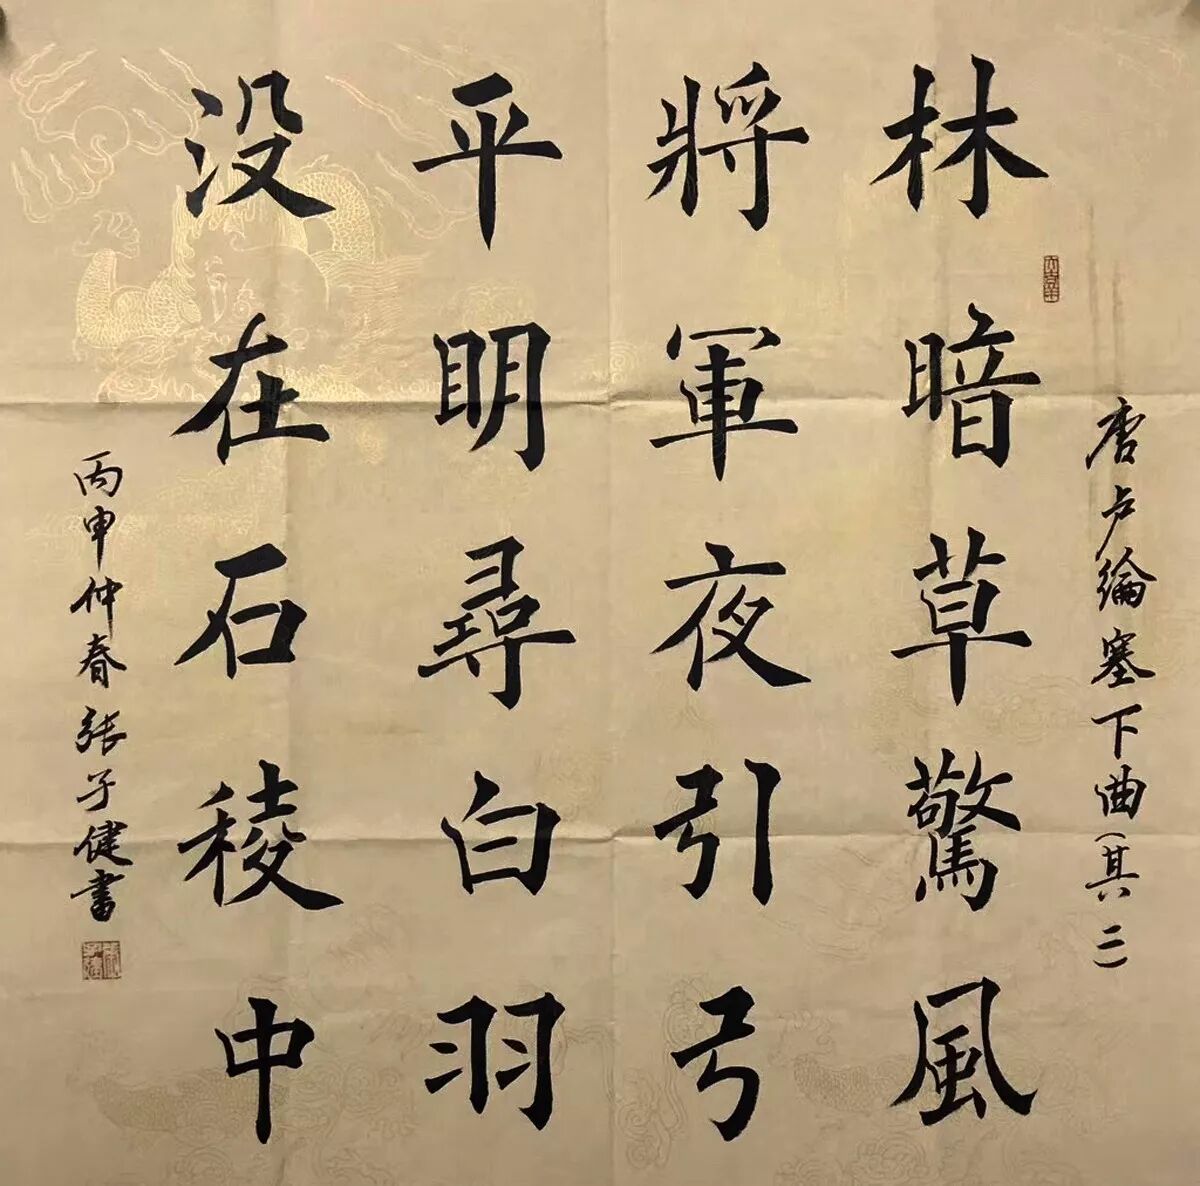 林暗草驚風
將軍夜引弓
平明尋白羽
没在石稜中
唐卢綸塞下曲(其二)
丙申仲春張子健書